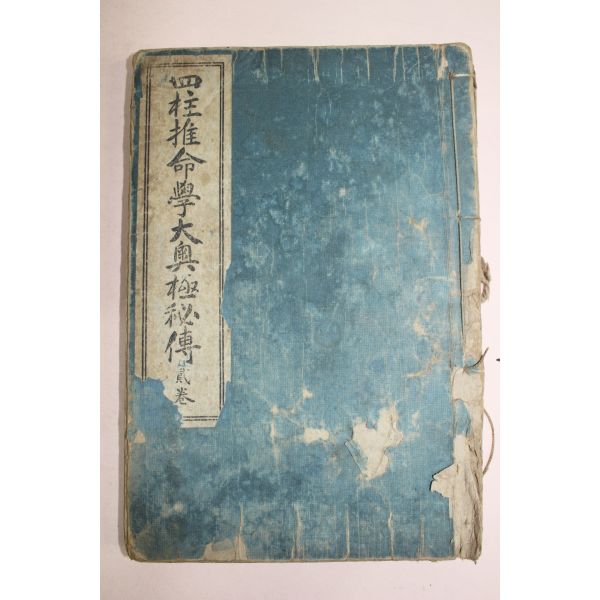 四柱推命學大奧極秘傳 貳卷